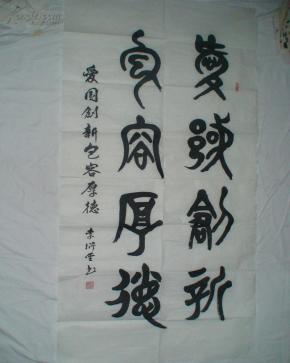 爱国创新
包容厚德
爱国创新包容厚德